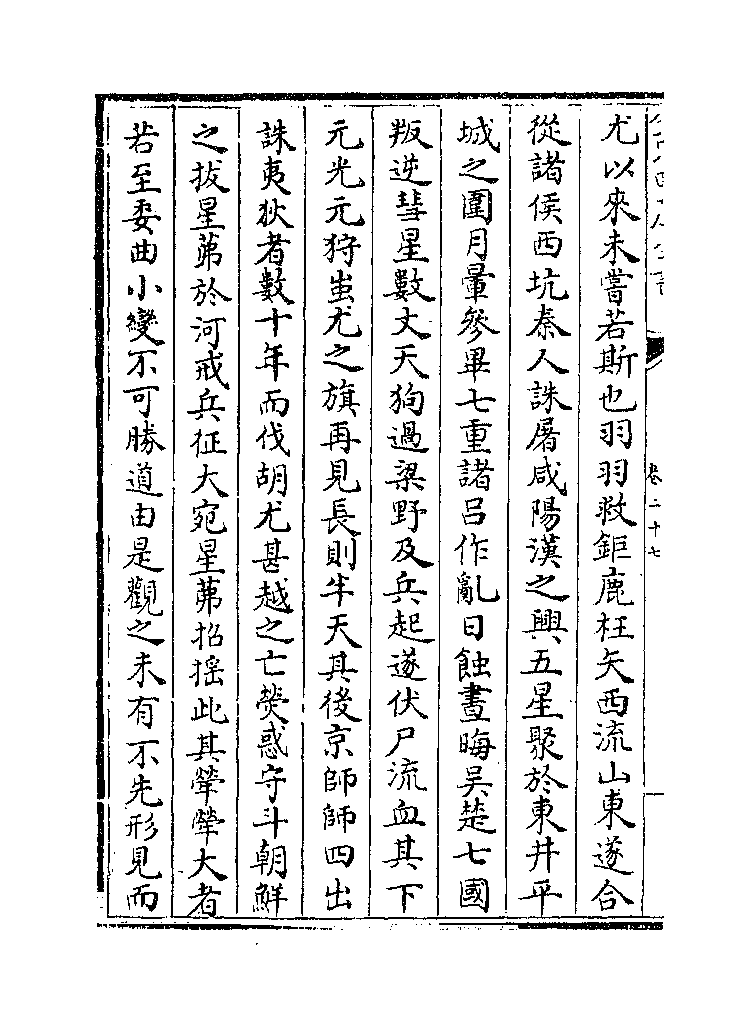 尤以來未嘗若斯也羽羽救鉅鹿枉矢西流山東遂合
從諸侯西坑秦人誅屠咸陽漢之興五星聚於東井平
城之圍月暈參畢七重諸呂作亂日蝕晝晦吳楚七國
叛逆彗星數丈天狗過梁野及兵起遂伏尸流血其下
元光元狩蚩尤之旗再見長則半天其後京師師四出
誅夷狄者數十年而伐胡尤甚越之亡熒惑守斗朝鮮
之拔星茀於河戒兵征大宛星茀招搖此其犖犖大者
若至委曲小變不可勝道由是觀之未有不先形見而
卷二十七